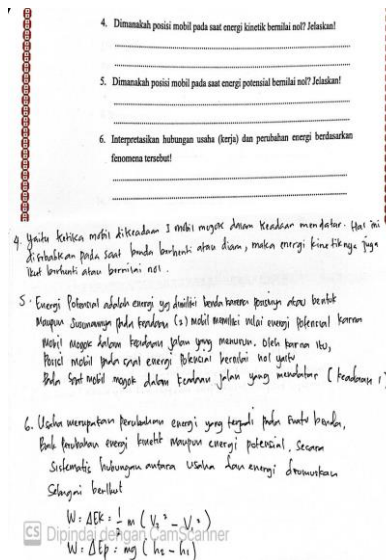 4. Dimanakah posisi mobil pada saat energi kinetik bernilai nol? Jelaskan!
5. Dimanakah posisi mobil pada saat energi potensial bernilai nol? Jelaskan!
6. Interpretasikan hubungan usaha (kerja) dan perubahan energi berdasarkan
fenomena tersebut!
4. Yaitu ketika mobil dikeadaan 1 mobil mogok dalam keadaan mendatar. Hal ini
disebabkan pada saat benda berhenti atau diam, maka energi kinetiknya juga
ikut berhenti atau bernilai nol.
5. Energi Potensial adalah energi yg dimiliki benda karena posisinya atau bentuk
maupun susunannya pada keadaan (2) mobil memiliki nilai energi potensial karna
mobil mogok dalam keadaan jalan yang menurun. oleh karna itu,
Posisi mobil pada saat energi potensial bernilai nol yaitu
Pada saat mobil mogok dalam keadaan jalan yang mendatar (keadaan 1)
6. Usaha merupakan perubahan energi yang terjadi pada suatu benda,
Baik perubahan energi kinetik maupun energi potensial, secara
Sistematis hubungan antara usaha dan energi dirumuskan
Sebagai berikut
W = ΔEk = 1/2 m (V₂² - V₁²)
CS Dipindai dengan CamScanner
W = ΔEp = mg (h₂ - h₁)